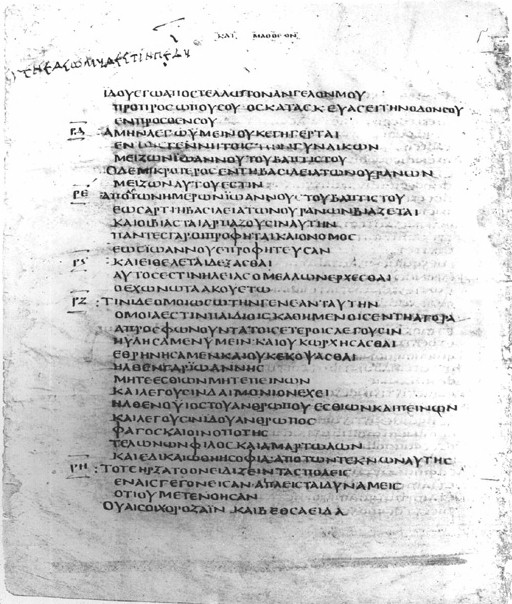 ΚΑΤ ΜΑΘΘΕΟΝ
ΙΔΟΥ ΕΓΩ ΑΠΟΣΤΕΛΛΩ ΤΟΝ ΑΓΓΕΛΟΝ ΜΟΥ
ΠΡΟ ΠΡΟΣΩΠΟΥ ΣΟΥ ΟΣ ΚΑΤΑΣΚΕΥΑΣΕΙ ΤΗΝ ΟΔΟΝ ΣΟΥ
ΕΝΠΡΟΣΘΕΝ ΣΟΥ
ΡΔ : ΑΜΗΝ ΛΕΓΩ ΥΜΕΙΝ ΟΥΚ ΕΓΗΓΕΡΤΑΙ
ΕΝ ΤΟΙΣ ΓΕΝΝΗΤΟΙΣ ΤΩΝ ΓΥΝΑΙΚΩΝ
ΜΕΙΖΩΝ ΙΩΑΝΝΟΥ ΤΟΥ ΒΑΠΤΙΣΤΟΥ
Ο ΔΕ ΜΙΚΡΟΤΕΡΟΣ ΕΝ ΤΗ ΒΑΣΙΛΕΙΑ ΤΩΝ ΟΥΡΑΝΩΝ
ΜΕΙΖΩΝ ΑΥΤΟΥ ΕΣΤΙΝ
ΡΕ : ΑΠΟ ΤΩΝ ΗΜΕΡΩΝ ΙΩΑΝΝΟΥ ΤΟΥ ΒΑΠΤΙΣΤΟΥ
ΕΩΣ ΑΡΤΙ Η ΒΑΣΙΛΕΙΑ ΤΩΝ ΟΥΡΑΝΩΝ ΒΙΑΖΕΤΑΙ
ΚΑΙ ΟΙ ΒΙΑΣΤΑΙ ΑΡΠΑΖΟΥΣΙΝ ΑΥΤΗΝ
ΠΑΝΤΕΣ ΓΑΡ ΟΙ ΠΡΟΦΗΤΑΙ ΚΑΙ Ο ΝΟΜΟΣ
ΕΩΣ ΙΩΑΝΝΟΥ ΕΠΡΟΦΗΤΕΥΣΑΝ
ΡϚ : ΚΑΙ ΕΙ ΘΕΛΕΤΑΙ ΔΕΞΑΣΘΑΙ
ΑΥΤΟΣ ΕΣΤΙΝ ΗΛΕΙΑΣ Ο ΜΕΛΛΩΝ ΕΡΧΕΣΘΑΙ
Ο ΕΧΩΝ ΩΤΑ ΑΚΟΥΕΤΩ
ΡΖ : ΤΙΝΙ ΔΕ ΟΜΟΙΩΣΩ ΤΗΝ ΓΕΝΕΑΝ ΤΑΥΤΗΝ
ΟΜΟΙΑ ΕΣΤΙΝ ΠΑΙΔΙΟΙΣ ΚΑΘΗΜΕΝΟΙΣ ΕΝ ΤΗ ΑΓΟΡΑ
Α ΠΡΟΣΦΩΝΟΥΝΤΑ ΤΟΙΣ ΕΤΕΡΟΙΣ ΛΕΓΟΥΣΙΝ
ΗΥΛΗΣΑΜΕΝ ΥΜΕΙΝ ΚΑΙ ΟΥΚ ΩΡΧΗΣΑΣΘΑΙ
ΕΘΡΗΝΗΣΑΜΕΝ ΚΑΙ ΟΥΚ ΕΚΟΨΑΣΘΑΙ
ΗΛΘΕΝ ΓΑΡ ΙΩΑΝΝΗΣ
ΜΗΤΕ ΕΣΘΩΝ ΜΗΤΕ ΠΕΙΝΩΝ
ΚΑΙ ΛΕΓΟΥΣΙΝ ΔΑΙΜΟΝΙΟΝ ΕΧΕΙ
ΗΛΘΕΝ Ο ΥΙΟΣ ΤΟΥ ΑΝΘΡΩΠΟΥ ΕΣΘΙΩΝ ΚΑΙ ΠΕΙΝΩΝ
ΚΑΙ ΛΕΓΟΥΣΙΝ ΙΔΟΥ ΑΝΘΡΩΠΟΣ
ΦΑΓΟΣ ΚΑΙ ΟΙΝΟΠΟΤΗΣ
ΤΕΛΩΝΩΝ ΦΙΛΟΣ ΚΑΙ ΑΜΑΡΤΩΛΩΝ
ΚΑΙ ΕΔΙΚΑΙΩΘΗ Η ΣΟΦΙΑ ΑΠΟ ΤΩΝ ΤΕΚΝΩΝ ΑΥΤΗΣ
ΡΗ : ΤΟΤΕ ΗΡΞΑΤΟ ΟΝΕΙΔΙΖΕΙΝ ΤΑΣ ΠΟΛΕΙΣ
ΕΝ ΑΙΣ ΓΕΓΟΝΕΙΣΑΝ ΑΙ ΠΛΕΙΣΤΑΙ ΔΥΝΑΜΕΙΣ
ΟΤΙ ΟΥ ΜΕΤΕΝΟΗΣΑΝ
ΟΥΑΙ ΣΟΙ ΧΟΡΟΖΑΙΝ ΚΑΙ ΒΕΘΣΑΕΙΔΑ